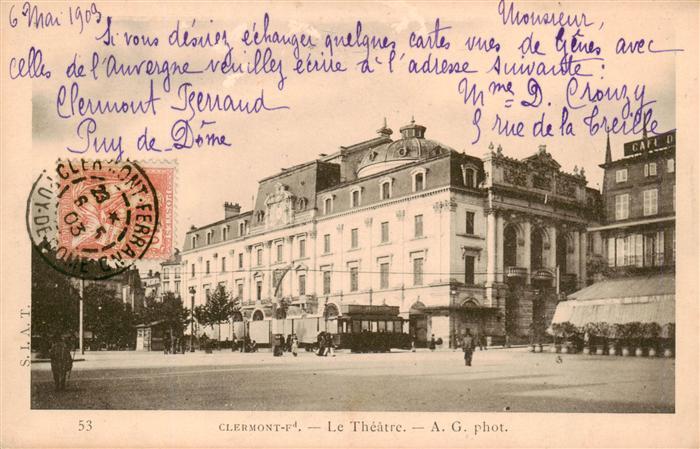 6 Mai 1903
Monsieur,
Si vous désirez échanger quelques cartes vues de Gênes avec
celles de l'Auvergne veuillez écrire à l'adresse suivante :
Clermont Ferrand
Puy de Dôme
Mme D. Crouzy
5 rue de la Treille
CAFÉ DE
CLERMONT-FERRAND
PUY-DE-DOME
5
03
S.I.A.T.
53
CLERMONT-Fd. — Le Théâtre. — A. G. phot.